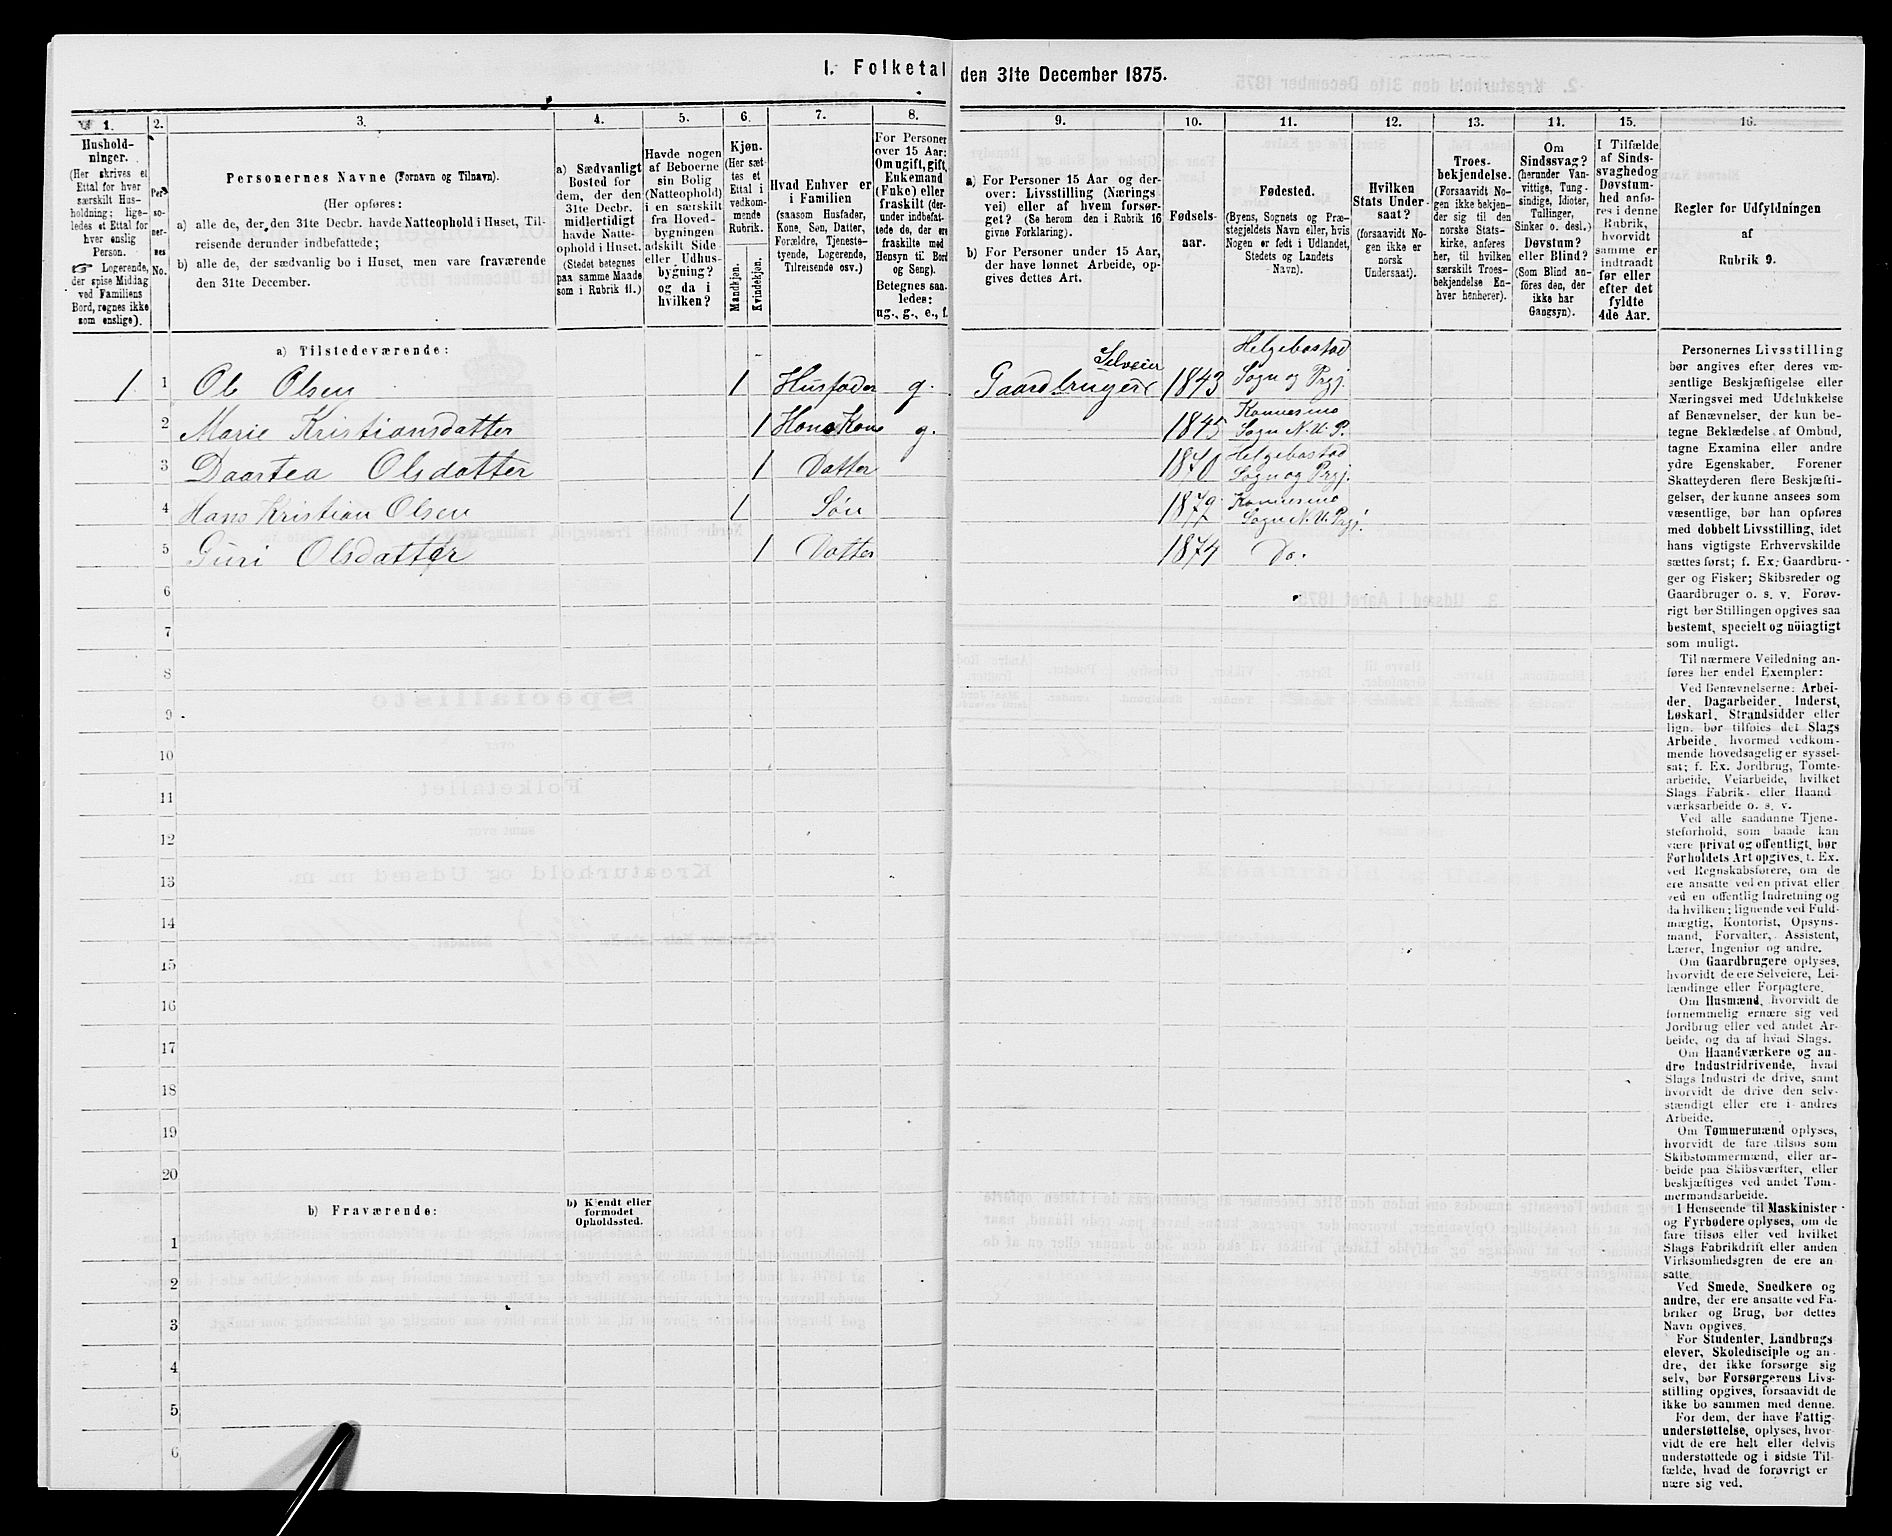 I. Folketal den 31te December 1875.
1. 2. 3. 4. 5. 6. 7. 8. 9. 10. 11. 12. 13. 14. 15. 16.
Hushold-
ninger.
(Her skrives et
Ettal for hver
særskilt Hus-
holdning; lige-
ledes et Ettal for
hver enslig
Person.
☞ Logerende,
der spise Middag
ved Familiens
Bord, regnes ikke
som enslige).
Per-
so-
ner-
nes
No.
Personernes Navne (Fornavn og Tilnavn).
(Her opføres:
a) alle de, der den 31te Decbr. havde Natteophold i Huset, Til-
reisende derunder indbefattede;
b) alle de, der sædvanlig bo i Huset, men vare fraværende
den 31te December.
a) Sædvanligt
Bosted for
dem, der den
31te Decbr.
midlertidigt
havde Natte-
ophold i Huset.
(Stedet betegnes
paa samme Maade
som i Rubrik 11.)
Havde nogen
af Beboerne
sin Bolig
(Natteophold)
i en særskilt
fra Hoved-
bygningen
adskilt Side-
eller Udhus-
bygning?
og da i
hvilken?
Kjøn.
(Her sæt-
tes et
Ettal i
vedkom-
mende
Rubrik.
Mandkjøn.
Kvindekjøn.
Hvad Enhver er
i Familien
(saasom Husfader,
Kone, Søn, Datter,
Forældre, Tjeneste-
tyende, Logerende,
Tilreisende osv.)
For Personer
over 15 Aar:
Om ugift, gift,
Enkemand
(Enke) eller
fraskilt (der-
under indbefat-
tede de, der ere
fraskilte med
Hensyn til Bord
og Seng).
Betegnes saa-
ledes:
ug., g., e., f.
a) For Personer 15 Aar og der-
over: Livsstilling (Nærings-
vei) eller af hvem forsør-
get? (Se herom den i Rubrik 16
givne Forklaring).
b) For Personer under 15 Aar,
der have lønnet Arbeide, op-
gives dettes Art.
Fødsels-
aar.
Fødested.
(Byens, Sognets og Præ-
stegjeldets Navn eller, hvis
Nogen er født i Udlandet,
Stedets og Landets
Navn).
Hvilken
Stats Under-
saat?
(forsaavidt No-
gen ikke er
norsk
Undersaat).
Troes-
bekjendelse.
(Forsaavidt No-
gen ikke bekjen-
der sig til den
norske Stats-
kirke, anføres
her, til hvilken
særskilt Troes-
bekjendelse En-
hver henhører).
Om
Sindssvag?
(herunder Van-
vittige, Tung-
sindige, Idioter,
Tullinger,
Sinker o. desl.)
Døvstum?
eller Blind?
(Som Blind an-
føres den, der
ikke har
Gangsyn).
I Tilfælde
af Sinds-
svaghed og
Døvstum-
hed anfø-
res i denne
Rubrik,
hvorvidt
samme er
indtraadt
før eller
efter det
fyldte
4de Aar.
Regler for Udfyldningen
af
Rubrik 9.
a) Tilstedeværende:
1 1 Ole Olsen 1 Husfader g. Gaardbruger Selveier 1843 Helgebostad Sogn og Prgj.
2 Marie Kristiansdatter 1 Hans Kone g. 1845 Konnesmo Sogn N. U. P.
3 Daartea Olsdatter 1 Datter 1870 Helgebostad Sogn og Prgj.
4 Hans Kristian Olsen 1 Søn 1872 Konnesmo Sogn N. U. Prgj.
5 Guri Olsdatter 1 Datter 1874 Do.
6
7
8
9
10
11
12
13
14
15
16
17
18
19
20
b) Fraværende:
b) Kjendt eller
formodet
Opholdssted.
1
2
3
4
5
6
Personernes Livsstilling
bør angives efter deres væ-
sentlige Beskjæftigelse eller
Næringsvei med Udelukkelse
af Benævnelser, der kun be-
tegne Beklædelse af Ombud,
tagne Examina eller andre
ydre Egenskaber. Forener
Skatteyderen flere Beskjæfti-
gelser, der kunne ansees som
væsentlige, bør han opføres
med dobbelt Livsstilling, idet
hans vigtigste Erhvervskilde
sættes først; f. Ex. Gaardbru-
ger og Fisker; Skibsreder og
Gaardbruger o. s. v. Forøv-
rigt bør Stillingen opgives saa
bestemt, specielt og nöiagtigt
som muligt.
Til nærmere Veiledning an-
føres her endel Exempler:
Ved Benævnelserne: Arbei-
der, Dagarbeider, Inderst,
Løskarl, Strandsidder eller
lign. bør tilføies det Slags
Arbeide, hvormed vedkom-
mende hovedsagelig er syssel-
sat; f. Ex. Jordbrug, Tomte-
arbeide, Veiarbeide, hvilket
Slags Fabrik- eller Haand
værksarbeide o. s. v.
Ved alle saadanne Tjene-
steforhold, som baade kan
være privat og offentligt, bør
Forholdets Art opgives, f. Ex.
ved Regnskabsførere, om de
ere ansatte ved en privat eller
ved en offentlig Indretning og
da hvilken; lignende ved Fuld-
mægtig, Kontorist, Opsyns-
mand, Forvalter, Assistent,
Lærer, Ingeniør og andre.
Om Gaardbrugere oplyses,
hvorvidt de ere Selveiere, Lei-
lændinge eller Forpagtere.
Om Husmænd, hvorvidt de
fornemmelig ernære sig ved
Jordbrug eller ved andet Ar-
beide, og da af hvad Slags.
Om Haandværkere og an-
dre Industridrivende, hvad
Slags Industri de drive, samt
hvorvidt de drive den selv-
stændigt eller ere i andres
Arbeide.
Om Tømmermænd oplyses,
hvorvidt de fare tilsøs som
Skibstømmermænd, eller ar-
beide paa Skibsværfter, eller
beskjæftiges ved andet Tøm-
mermandsarbeide.
I Henseende til Maskinister
og Fyrbødere oplyses, om de
fare tilsøs eller ved hvilket
Slags Fabrikdrift eller anden
Virksomhedsgren de ere an-
satte.
Ved Smede, Snedkere og
andre, der ere ansatte ved Fa-
briker og Brug, bør dettes
Navn opgives.
For Studenter, Landbrugs
elever, Skoledisciple og an-
dre, der ikke forsørge sig
selv, bør Forsørgerens Livs-
stilling opgives, forsaavidt de
ikke bo sammen med denne.
For dem, der have Fattig-
understøttelse, oplyses, hvor-
vidt de ere helt eller delvis
understøttede og i sidste Til-
fælde, hvad de forøvrigt er
nære sig ved.